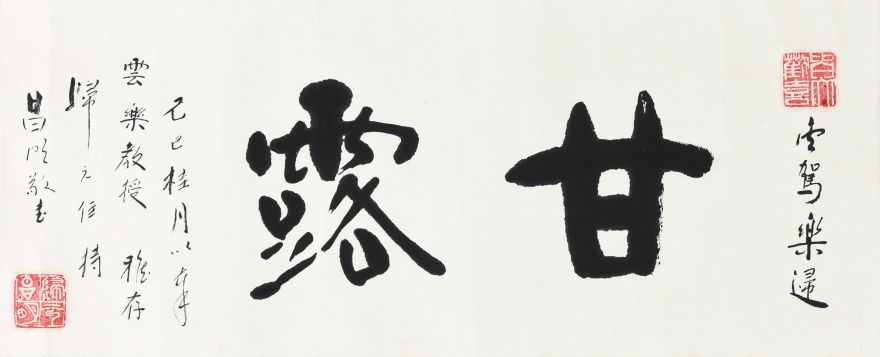 皆大歡喜
雲駕樂
甘露
己巳桂月以奉
雲樂教授 雅存
歸元住持
昌明敬書